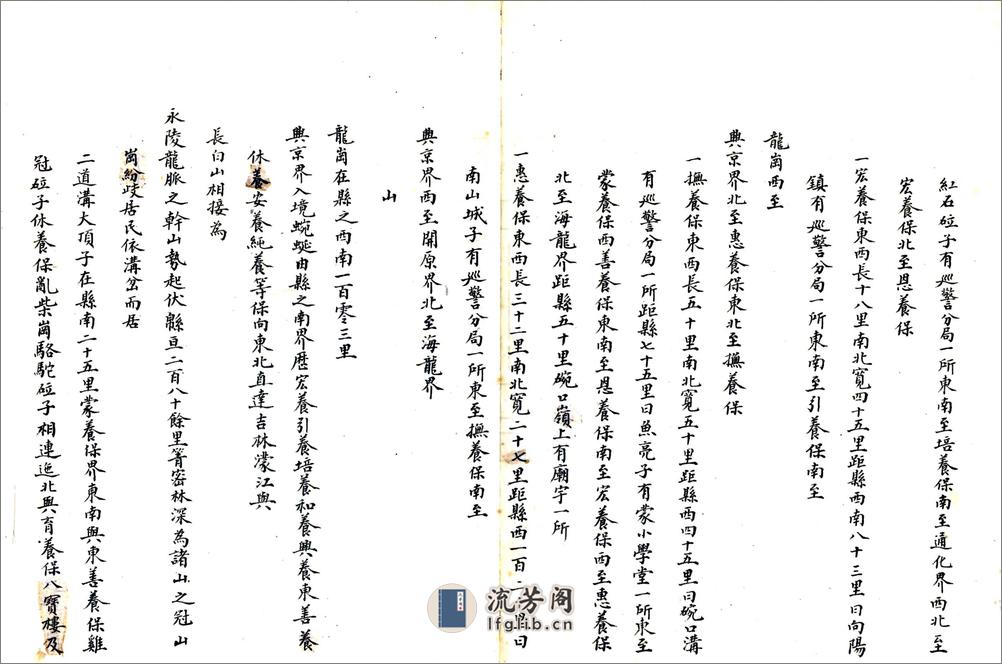 紅石砬子有巡警分局一所東南至培養保南至通化界西北至
宏養保北至恩養保
一宏養保東西長十八里南北寬四十五里距縣西南八十三里曰向陽
鎮有巡警分局一所東南至引養保南至
龍崗西至
興京界北至惠養保東北至撫養保
一撫養保東西長五十里南北寬五十里距縣西四十五里曰碗口溝
有巡警分局一所距縣七十五里曰魚亮子有蒙小學堂一所東至
蒙養保西善養保東南至恩養保南至宏養保西至惠養保
北至海龍界距縣五十里碗口嶺上有廟宇一所
一惠養保東西長三十二里南北寬二十七里距縣西一百二里曰
南山城子有巡警分局一所東至撫養保南至
興京界西至開原界北至海龍界
山
龍崗在縣之西南一百零三里
興京界入境蜿蜒由縣之南界歷宏養引養培養和養興養東善養
休養安養純養等保向東北直達吉林濛江與
長白山相接為
永陵龍脈之幹山勢起伏緜亘二百八十餘里箐密林深為諸山之冠山
崗紛歧居民依溝岔而居
二道溝大頂子在縣南二十五里蒙養保界東南與東善養保雞
冠砬子休養保亂柴崗駱駝砬子相連迤北與育養保八寶樓及
流芳阁
lfglib.cn